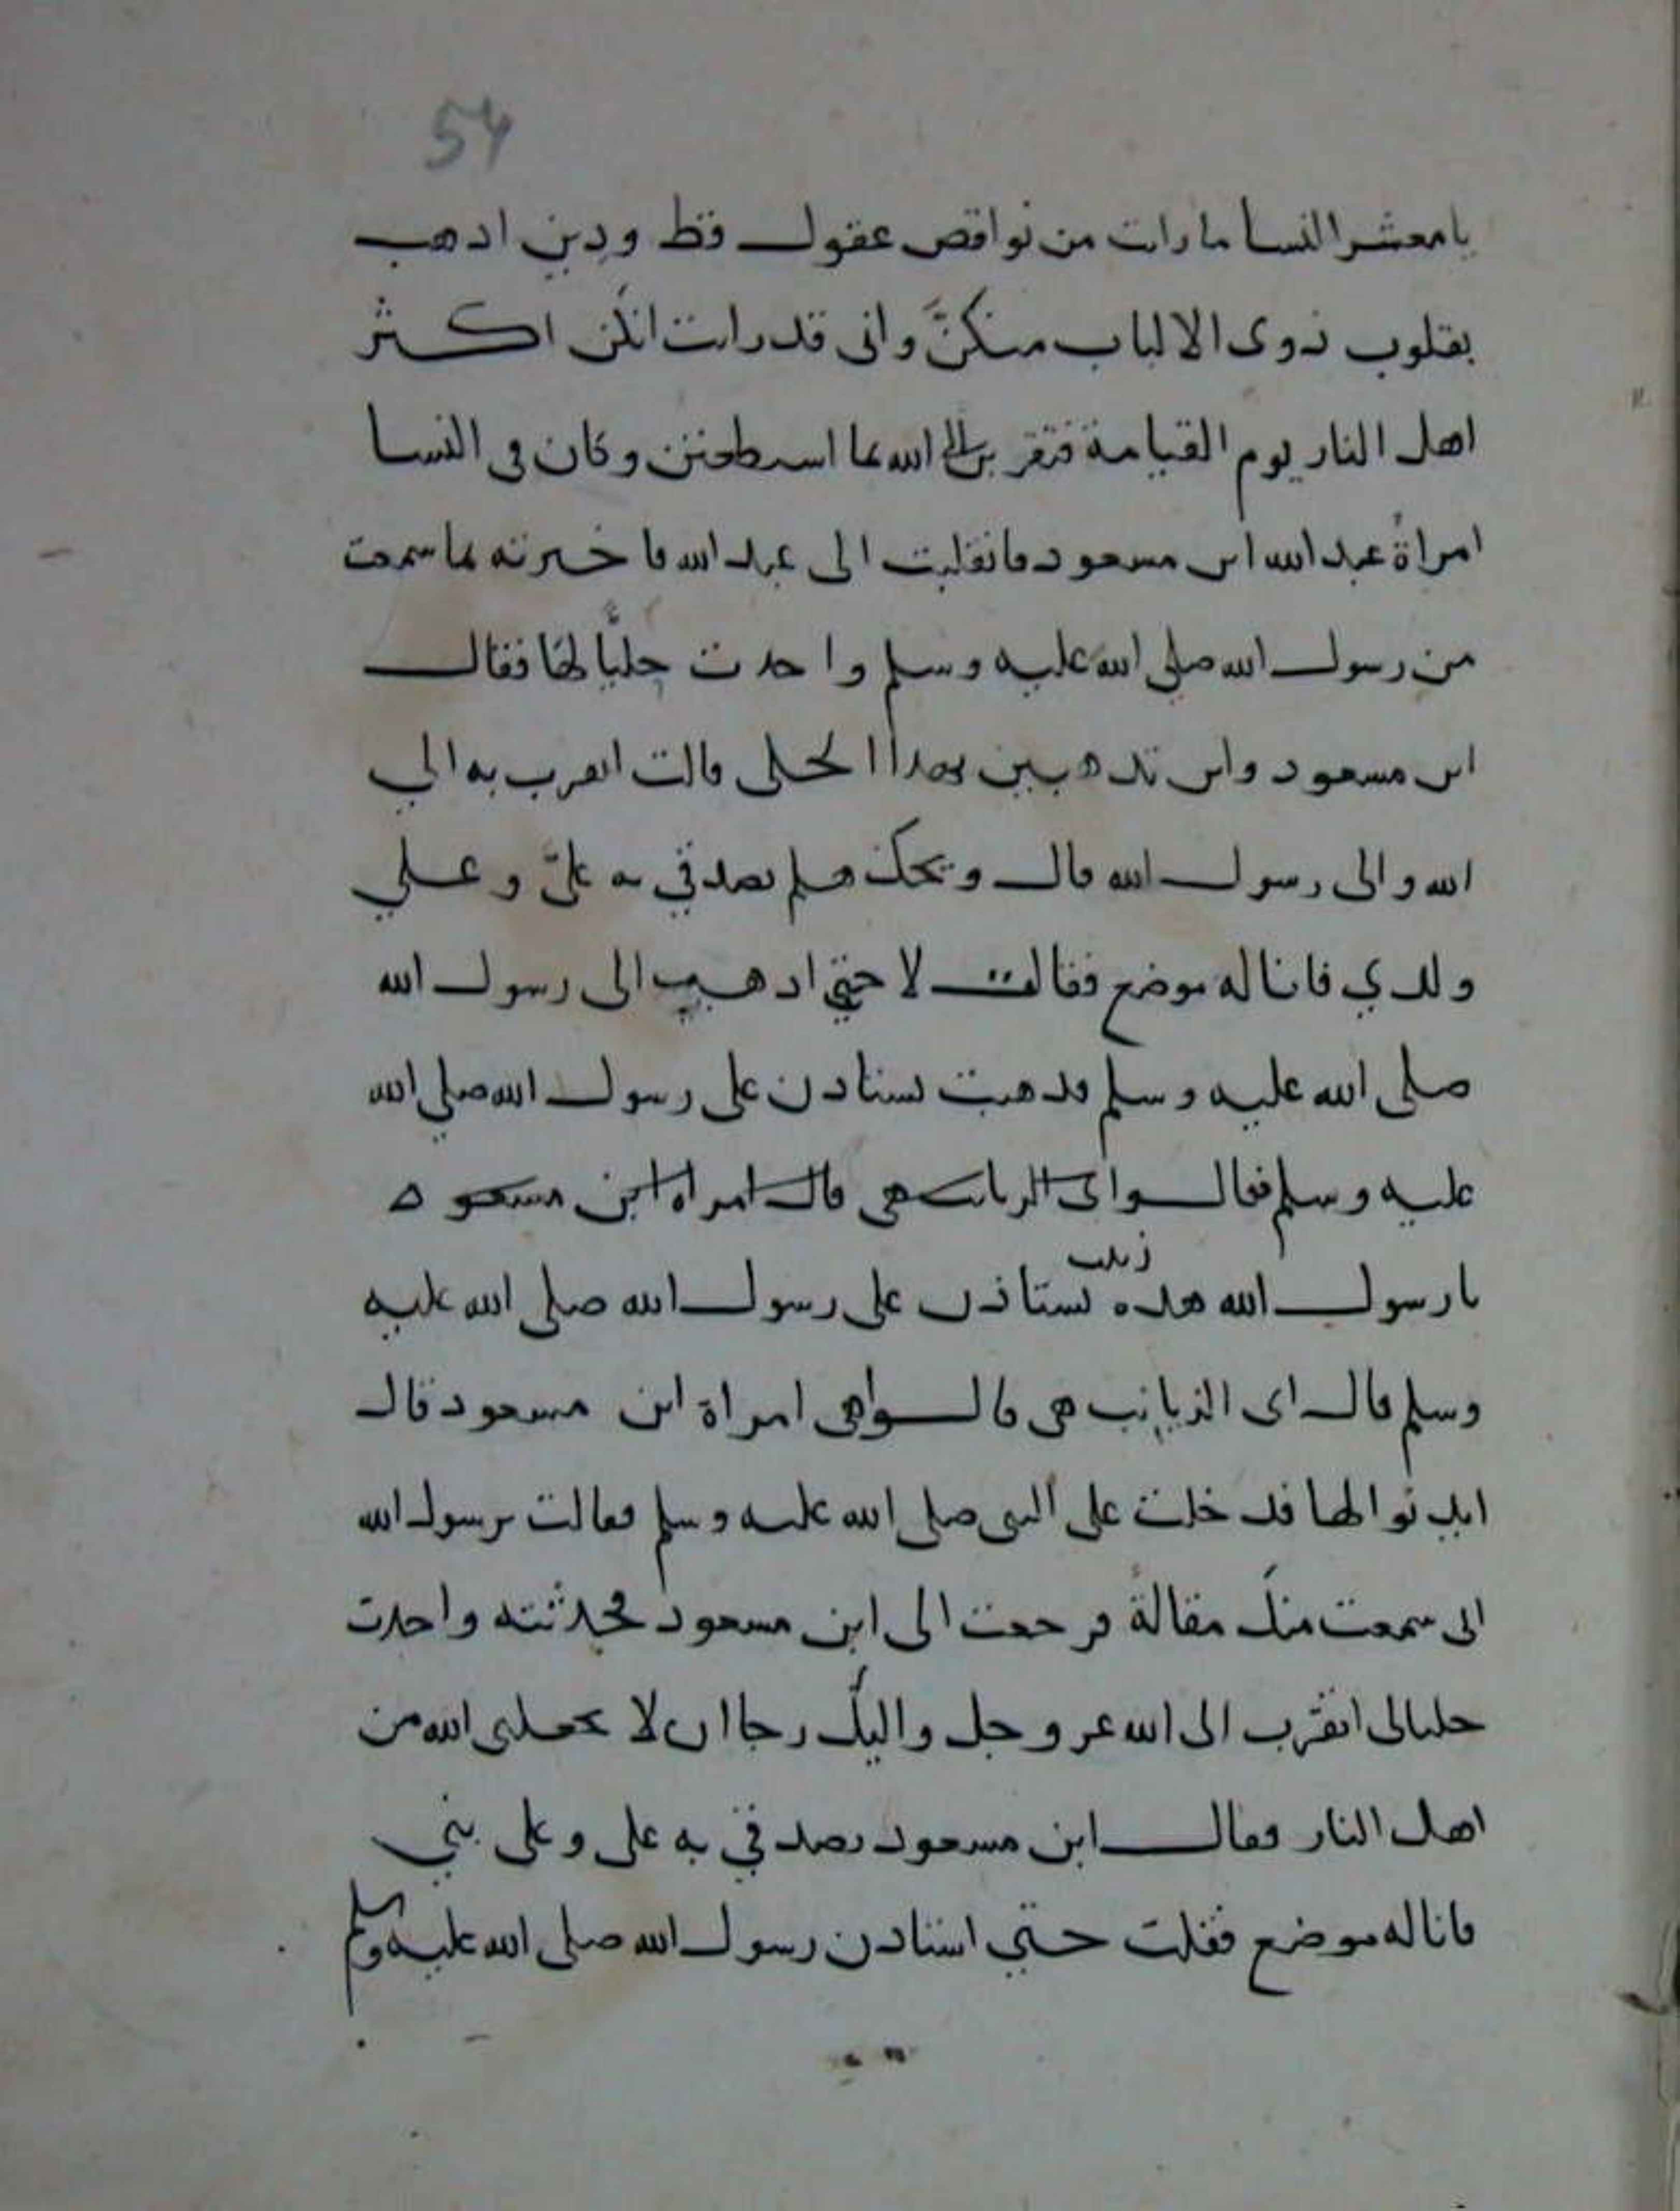 54
يامعشر النسا مارات من نواقص عقول قط ودين ادهب
بقلوب ذوى الالباب منكنّ وانى قدرات انكن اكثر
اهل النار يوم القيامة فتقربن الى الله بما استطعتن وكان فى النسا
امراة عبد الله ابن مسعود فانقلبت الى عبد الله فاخبرته بما سمعت
من رسول الله صلى الله عليه وسلم واخدت حليًّا لها فقال
ابن مسعود واين تدهبين بهدا الحلى قالت اتقرب به الي
الله والى رسول الله قال ويحك هلم تصدقي به علىّ وعلي
ولدي فانا له موضع فقالت لا حتي ادهب الى رسول الله
صلى الله عليه وسلم فدهبت تستادن على رسول الله صلي الله
عليه وسلم فقالوا اى الزيانب هى قال امراة ابن مسعود
يا رسول الله هده زينب تستاذن على رسول الله صلى الله عليه
وسلم قال اى الزيانب هى قالوا هى امراة ابن مسعود قال
ايدنوا لها فدخلت على النبى صلى الله عليه وسلم فقالت يرسول الله
انى سمعت منك مقالة فرجعت الى ابن مسعود فحدثته واخدت
حليا لى اتقرب الى الله عز وجل واليك رجا ان لا يجعلنى الله من
اهل النار فقال ابن مسعود تصدقي به على وعلى بني
فانا له موضع فقلت حتي استادن رسول الله صلى الله عليه وسلم